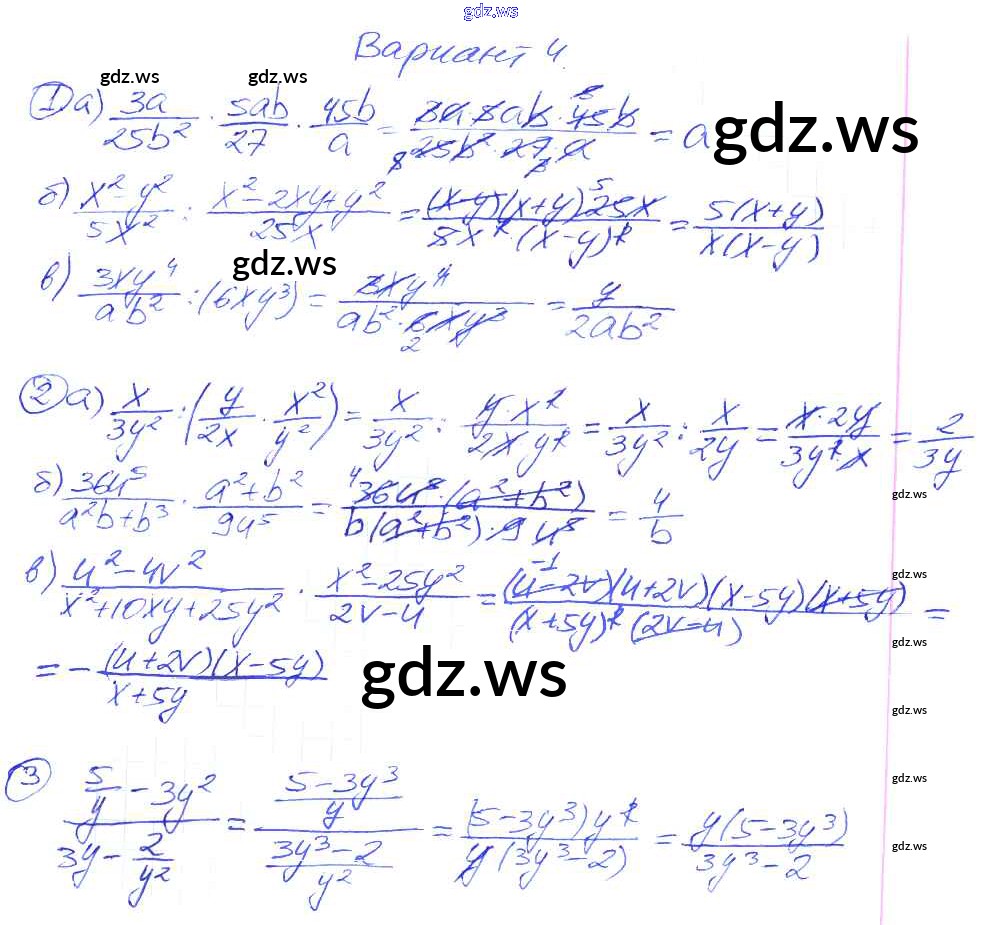 gdz.ws
Вариант 4.
gdz.ws gdz.ws
① а) 3a/25b² · 5ab/27 · 45b/a = 3a·5ab·45b/25b²·27·a = a gdz.ws
б) x²-y²/5x² : x²-2xy+y²/25x = (x-y)(x+y)25x/5x²·(x-y)² = 5(x+y)/x(x-y)
gdz.ws
в) 3xy⁴/ab² : (6xy³) = 3xy⁴/ab²·6xy³ = y/2ab²
② а) x/3y² : (y/2x · x²/y²) = x/3y² : y·x²/2xy² = x/3y² : x/2y = x·2y/3y²·x = 2/3y
б) 36u⁵/a²b+b³ · a²+b²/9u⁵ = 36u⁵·(a²+b²)/b(a²+b²)·9u⁵ = 4/b
gdz.ws
в) u²-4v²/x²+10xy+25y² · x²-25y²/2v-u = (u-2v)(u+2v)(x-5y)(x+5y)/(x+5y)²(2v-u) =
gdz.ws
gdz.ws
= -(u+2v)(x-5y)/x+5y
gdz.ws
gdz.ws
③ 5/y - 3y²/3y - 2/y² = 5-3y³/y/3y³-2/y² = (5-3y³)y²/y(3y³-2) = y(5-3y³)/3y³-2
gdz.ws
gdz.ws